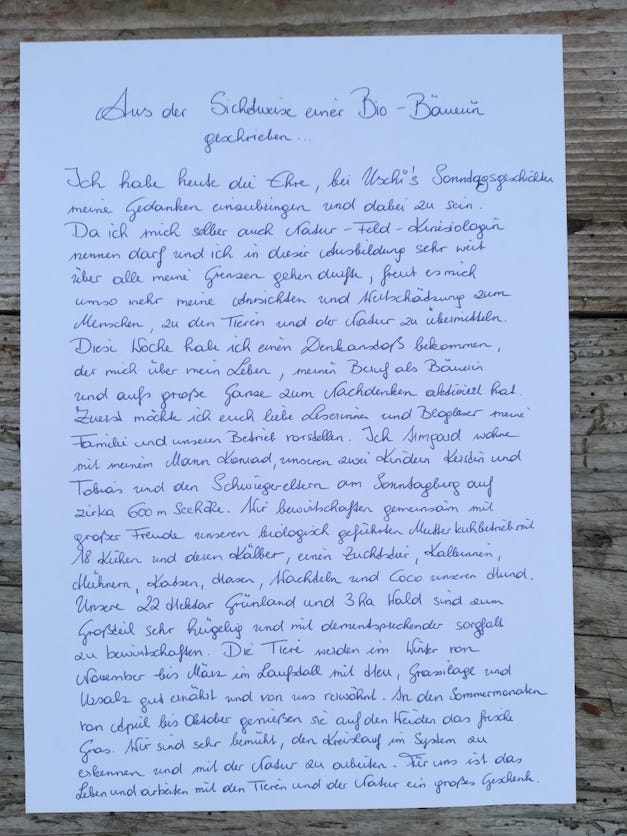 Aus der Sichtweise einer Bio-Bäuerin
geschrieben...
Ich habe heute die Ehre, bei Uschi's Sonntagsgeschichten
meine Gedanken einzubringen und dabei zu sein.
Da ich mich selber auch Natur-Feld-Kinesiologin
nennen darf und ich in dieser Ausbildung sehr weit
über alle meine Grenzen gehen durfte, freut es mich
umso mehr meine Ansichten und Wertschätzung zum
Menschen, zu den Tieren und der Natur zu übermitteln.
Diese Woche habe ich einen Denkanstoß bekommen,
der mich über mein Leben, meinen Beruf als Bäuerin
und aufs große Ganze zum Nachdenken aktiviert hat.
Zuerst möchte ich euch liebe Leserinnen und Blogleser meine
Familie und unseren Betrieb vorstellen. Ich Irmgard wohne
mit meinem Mann Konrad, unseren zwei Kindern Kerstin und
Tobias und den Schwiegereltern am Sonntagburg auf
zirka 600 m Seehöhe. Wir bewirtschaften gemeinsam mit
großer Freude unseren biologisch geführten Mutterkuhbetrieb mit
18 Kühen und deren Kälber, einen Zuchtstier, Kalbinnen,
Hühnern, Katzen, Hasen, Wachteln und Coco unseren Hund.
Unsere 22 Hektar Grünland und 3 ha Wald sind zum
Großteil sehr hügelig und mit dementsprechender sorgfalt
zu bewirtschaften. Die Tiere werden im Winter von
November bis März im Laufstall mit Heu, Grassilage und
Ursalz gut ernährt und von uns verwöhnt. In den Sommermonaten
von April bis Oktober genießen sie auf den Weiden das frische
Gras. Wir sind sehr bemüht, den Kreislauf im System zu
erkennen und mit der Natur zu arbeiten. Für uns ist das
Leben und arbeiten mit den Tieren und der Natur ein großes Geschenk.